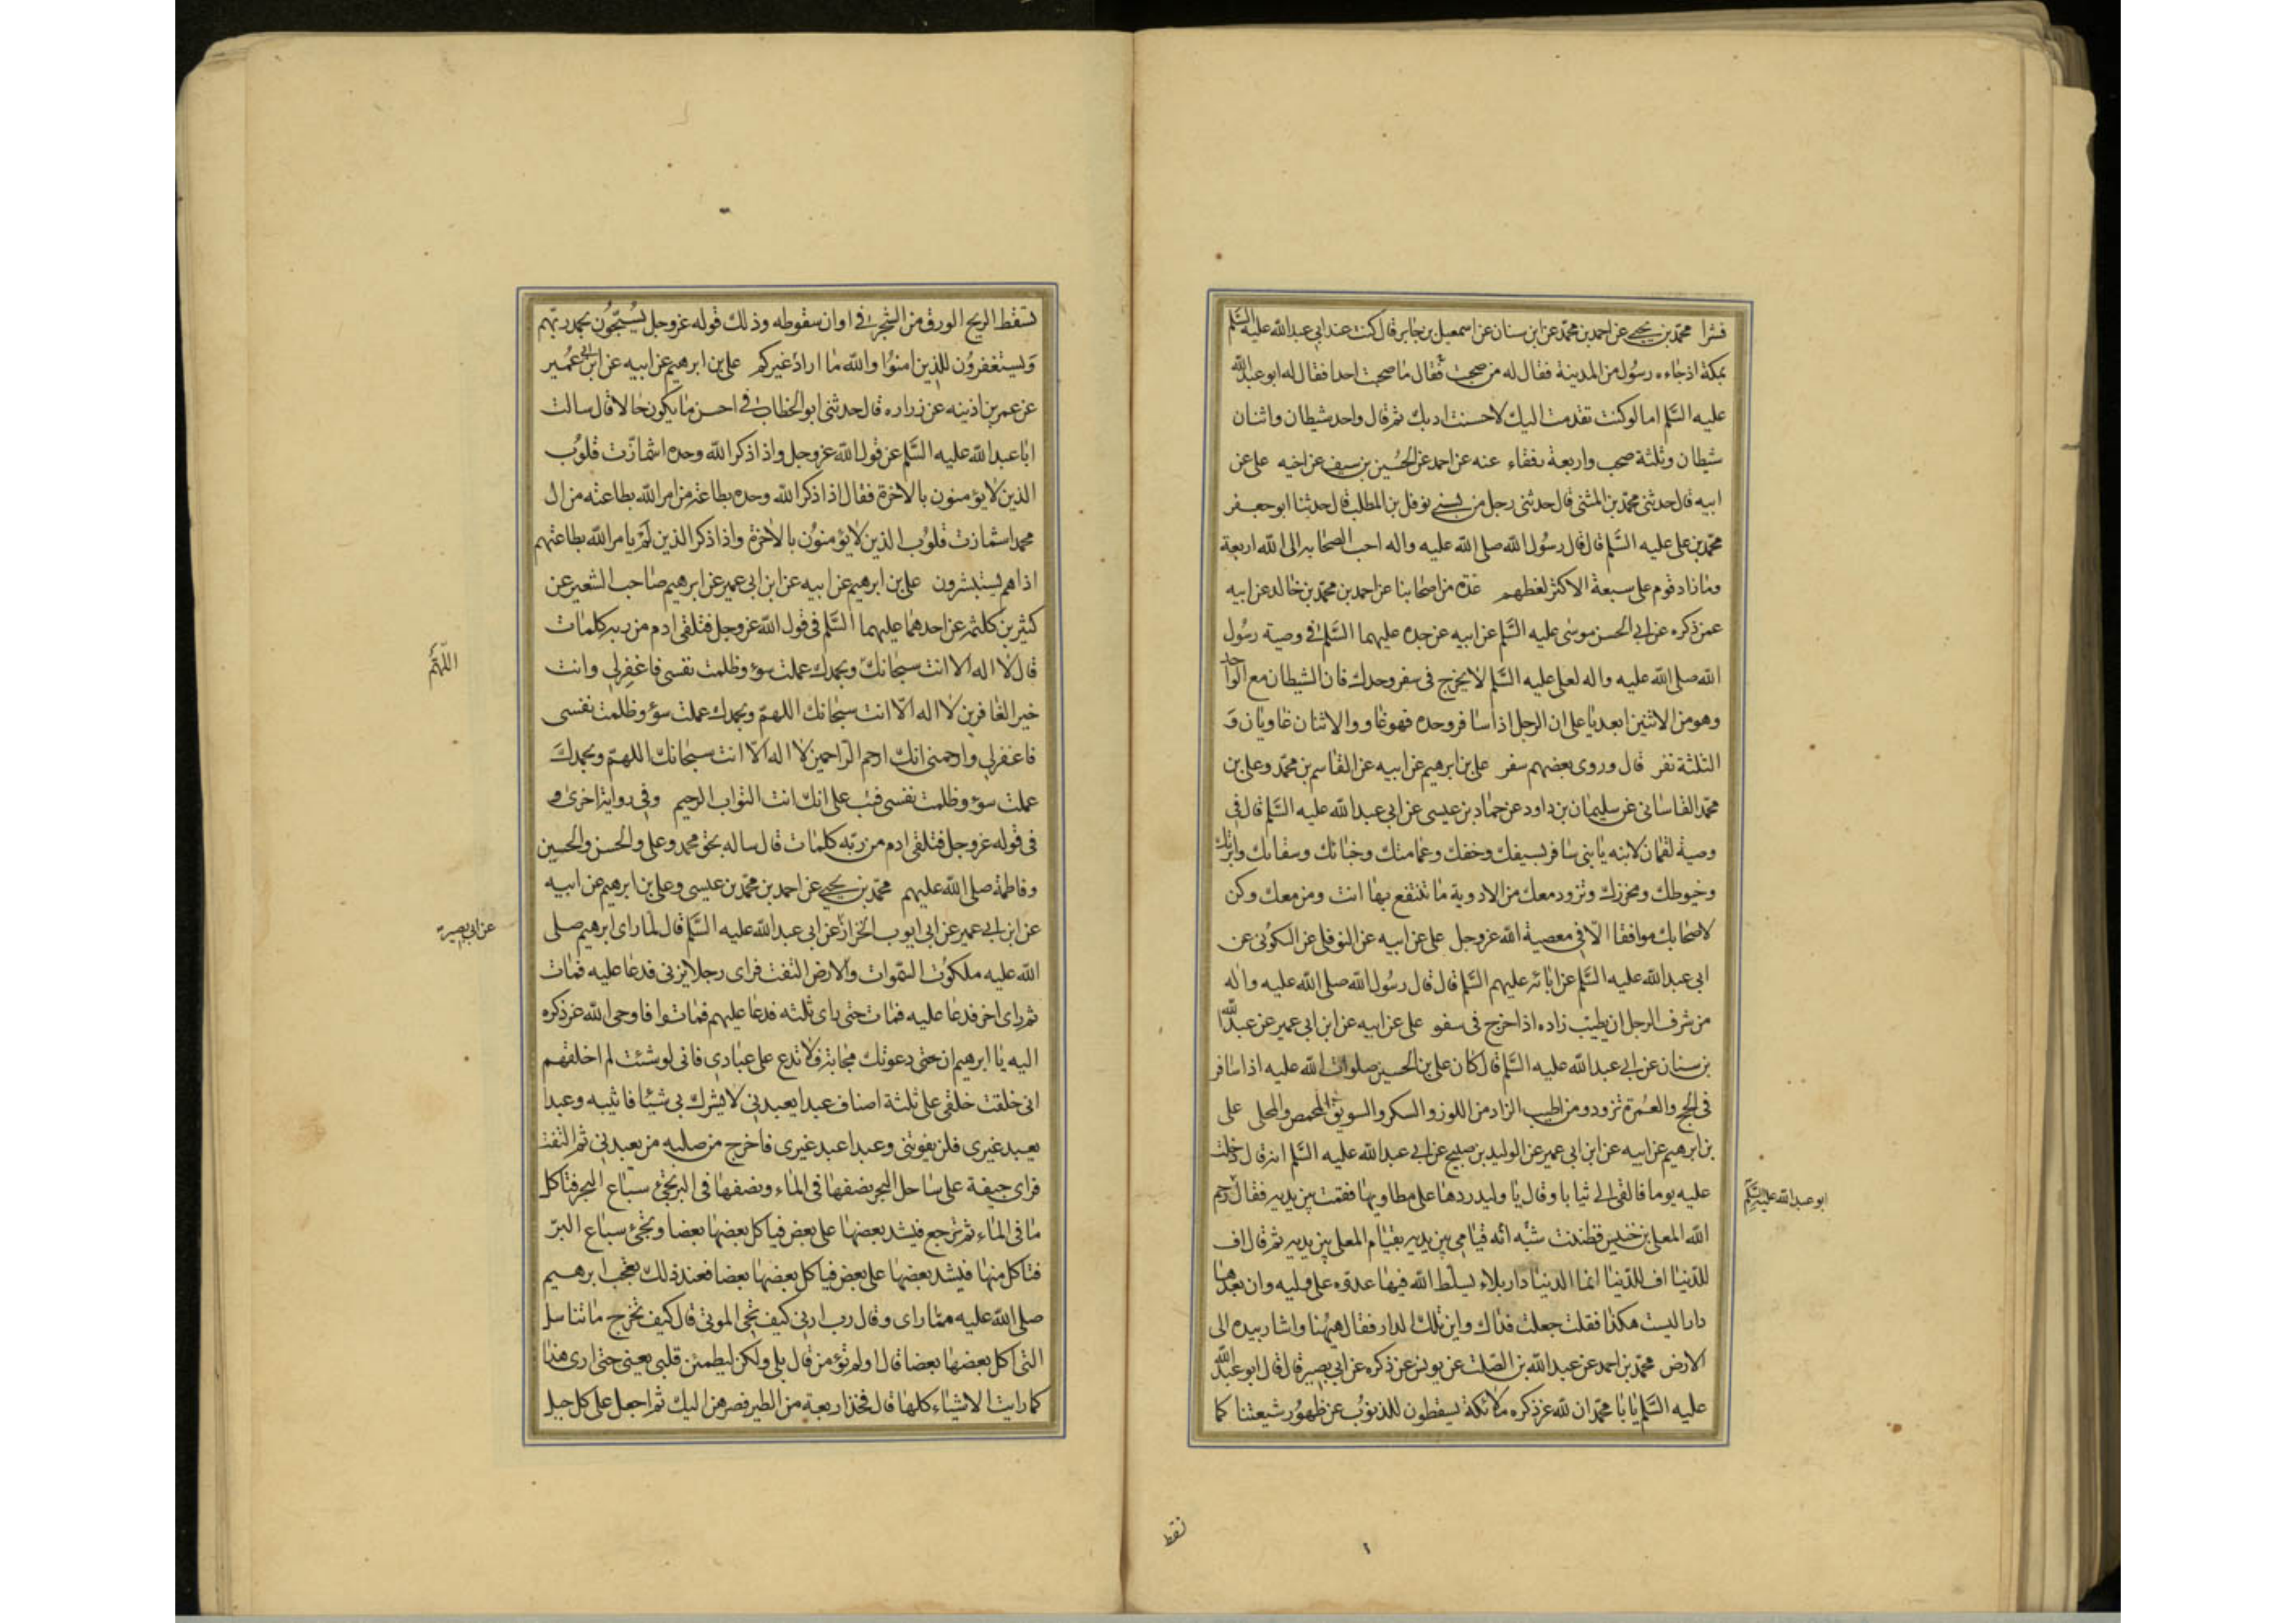 فشرا محمد بن يحيى عن احمد بن محمد عن ابن سنان عن اسمعيل بن جابر قال كنت عند ابي عبد الله عليه السلم
بمكة اذ جاءه رسول من المدينة فقال له من صحبت فقال ما صحبت احدا فقال له ابو عبد الله
عليه السلم اما لو كنت تقدمت اليك لاحسنت ادبك ثم قال واحد شيطان واثنان
شيطان وثلثة صحب واربعة رفقاء عنه عن احمد عن الحسين بن سيف عن اخيه على عن
ابيه قال حدثنى محمد بن المثنى قال حدثنى رجل من بنى نوفل بن المطلب قال حدثنا ابو جعفر
محمد بن على عليه السلم قال قال رسول الله صلى الله عليه واله احب الصحابه الى الله اربعة
وما زاد قوم على سبعة الا كثر لغطهم عدة من اصحابنا عن احمد بن محمد بن خالد عن ابيه
عمن ذكره عن ابى الحسن موسى عليه السلم عن ابيه عن جده عليهما السلم فى وصية رسول
الله صلى الله عليه واله لعلى عليه السلم لا يخرج فى سفر وحدك فان الشيطان مع الواحد
وهو من الاثنين ابعد يا على ان الرجل اذا سافر وحده فهو غاو والاثنان غاويان و
الثلثة نفر قال وروى بعضهم سفر على بن ابرهيم عن ابيه عن القاسم بن محمد وعلى بن
محمد القاسانى عن سليمان بن داود عن حماد بن عيسى عن ابى عبد الله عليه السلم قال فى
وصية لقمان لابنه يا بنى سافر بسيفك وخفك وعمامتك وخبائك وسقائك وابرتك
وخيوطك ومخرزك وتزود معك من الادوية ما تنتفع بها انت ومن معك وكن
لاصحابك موافقا الا فى معصية الله عز وجل على عن ابيه عن النوفلى عن السكونى عن
ابى عبد الله عليه السلم عن ابائه عليهم السلم قال قال رسول الله صلى الله عليه واله
من شرف الرجل ان يطيب زاده اذا خرج فى سفر على عن ابيه عن ابن ابى عمير عن عبد الله
بن سنان عن ابى عبد الله عليه السلم قال كان على بن الحسين صلوات الله عليه اذا سافر
فى الحج والعمرة تزود من اطيب الزاد من اللوز والسكر والسويق المحمص والمحلى على
بن ابرهيم عن ابيه عن ابن ابى عمير عن الوليد بن صبيح عن ابى عبد الله عليه السلم انه قال دخلت
عليه يوما فالقى الى ثيابا وقال يا وليد ردها على مطاويها فقمت بين يديه فقال رحم
ابو عبد الله عليه السلم
الله المعلى بن خنيس فظننت شبه انه قيامى بين يديه بقيام المعلى بين يديه ثم قال اف
للدنيا اف للدنيا انما الدنيا دار بلاء يسلط الله فيها عدوه على وليه وان بعدها
دارا ليست هكذا فقلت جعلت فداك واين تلك الدار فقال ههنا واشار بيده الى
الارض محمد بن احمد عن عبد الله بن الصلت عن يونس عن ذكره عن ابى بصير قال قال ابو عبد الله
عليه السلم يا با محمد ان لله عز ذكره ملائكة يسقطون للذنوب عن ظهور شيعتنا كما
تسقط الريح الورق من الشجر فى اوان سقوطه وذلك قوله عز وجل يسبحون بحمد ربهم
ويستغفرون للذين امنوا والله ما اراد غيركم على بن ابرهيم عن ابيه عن ابن ابى عمير
عن عمر بن اذينه عن زراره قال حدثنى ابو الخطاب فى احسن ما يكون حالا قال سالت
ابا عبد الله عليه السلم عن قول الله عز وجل واذا ذكر الله وحده اشمازت قلوب
الذين لا يؤمنون بالاخرة فقال اذا ذكر الله وحده بطاعة من امر الله بطاعته من ال
محمد اشمازت قلوب الذين لا يؤمنون بالاخرة واذا ذكر الذين لم يامر الله بطاعتهم
اذا هم يستبشرون على بن ابرهيم عن ابيه عن ابن ابى عمير عن ابرهيم صاحب الشعير عن
كثير بن كلثمه عن احدهما عليهما السلم فى قول الله عز وجل فتلقى ادم من ربه كلمات
قال لا اله الا انت سبحانك وبحمدك عملت سوء وظلمت نفسى فاغفر لى وانت
اللهم
خير الغافرين لا اله الا انت سبحانك اللهم وبحمدك عملت سوء وظلمت نفسى
فاغفر لى وارحمنى انك ارحم الراحمين لا اله الا انت سبحانك اللهم وبحمدك
عملت سوء وظلمت نفسى فتب على انك انت التواب الرحيم وفى رواية اخرى
فى قوله عز وجل فتلقى ادم من ربه كلمات قال ساله بحق محمد وعلى والحسن والحسين
وفاطمة صلى الله عليهم محمد بن يحيى عن احمد بن محمد بن عيسى وعلى بن ابرهيم عن ابيه
عن ابن ابى عمير عن ابى ايوب الخزاز عن ابى عبد الله عليه السلم قال لما راى ابرهيم صلى
عن ابى بصير
الله عليه ملكوت السموات والارض التفت فراى رجلا يزنى فدعا عليه فمات
ثم راى اخر فدعا عليه فمات حتى راى ثلثه فدعا عليهم فماتوا فاوحى الله عز ذكره
اليه يا ابرهيم ان دعوتك مجابة فلا تدع على عبادى فانى لو شئت لم اخلقهم
انى خلقت خلقى على ثلثة اصناف عبدا يعبدنى لا يشرك بى شيئا فاثيبه وعبدا
يعبد غيرى فلن يفوتنى وعبدا عبد غيرى فاخرج من صلبه من يعبدنى ثم التفت
فراى جيفة على ساحل البحر نصفها فى الماء ونصفها فى البر تجئ سباع البحر فتاكل
ما فى الماء ثم ترجع فيشد بعضها على بعض فياكل بعضها بعضا وتجئ سباع البر
فتاكل منها فيشد بعضها على بعض فياكل بعضها بعضا فعند ذلك تعجب ابرهيم
صلى الله عليه مما راى وقال رب ارنى كيف تحى الموتى قال كيف تخرج ما تناسل
التى اكل بعضها بعضا قال اولم تؤمن قال بلى ولكن ليطمئن قلبى يعنى حتى ارى هذا
كما رايت الاشياء كلها قال فخذ اربعة من الطير فصرهن اليك ثم اجعل على كل جبل